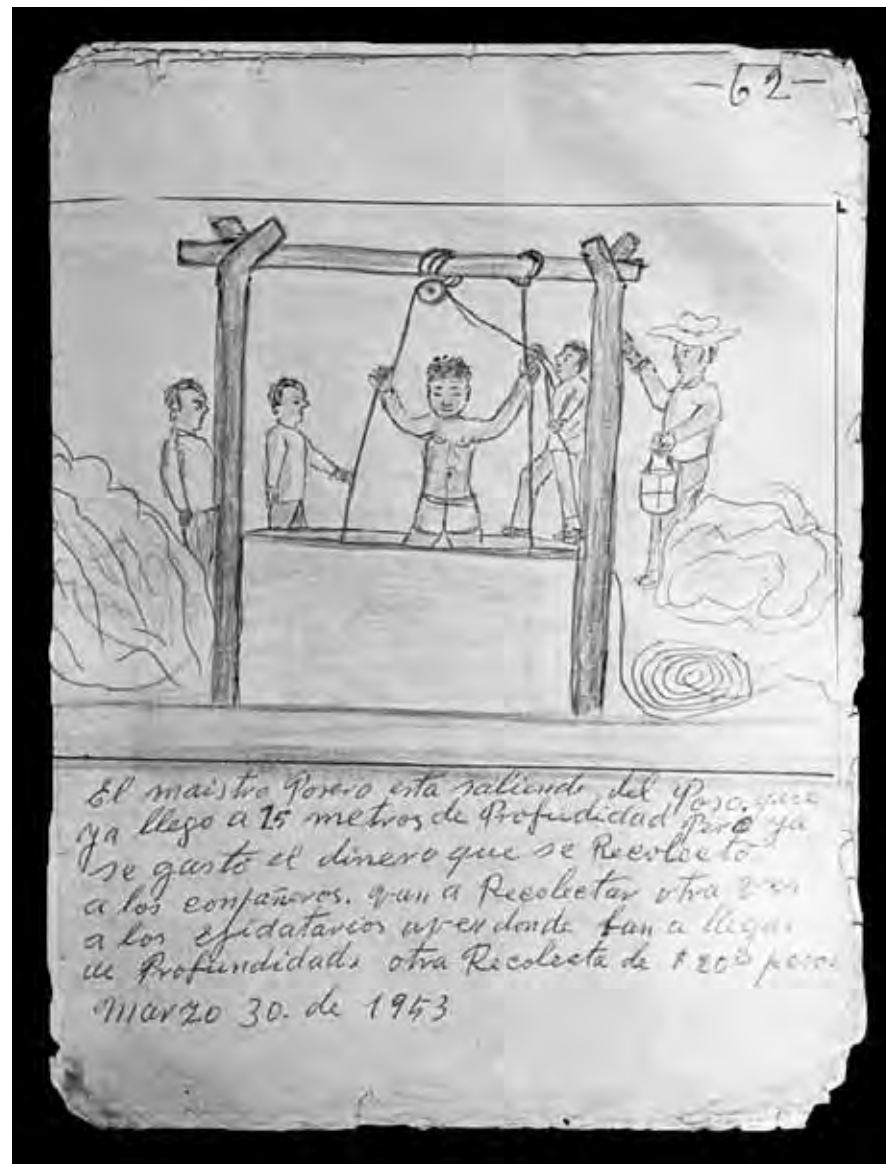 -62-
El maistro Posero esta saliendo del Poso, que
ya llego a 25 metros de Profudidad Pero ya
se gasto el dinero que se Recolecto
a los conpañeros. van a Recolectar otra ves
a los Ejidatarios aver donde ban a llegar
de Profundidad. otra Recolecta de $ 20⁰⁰ pesos
Marzo 30. de 1953